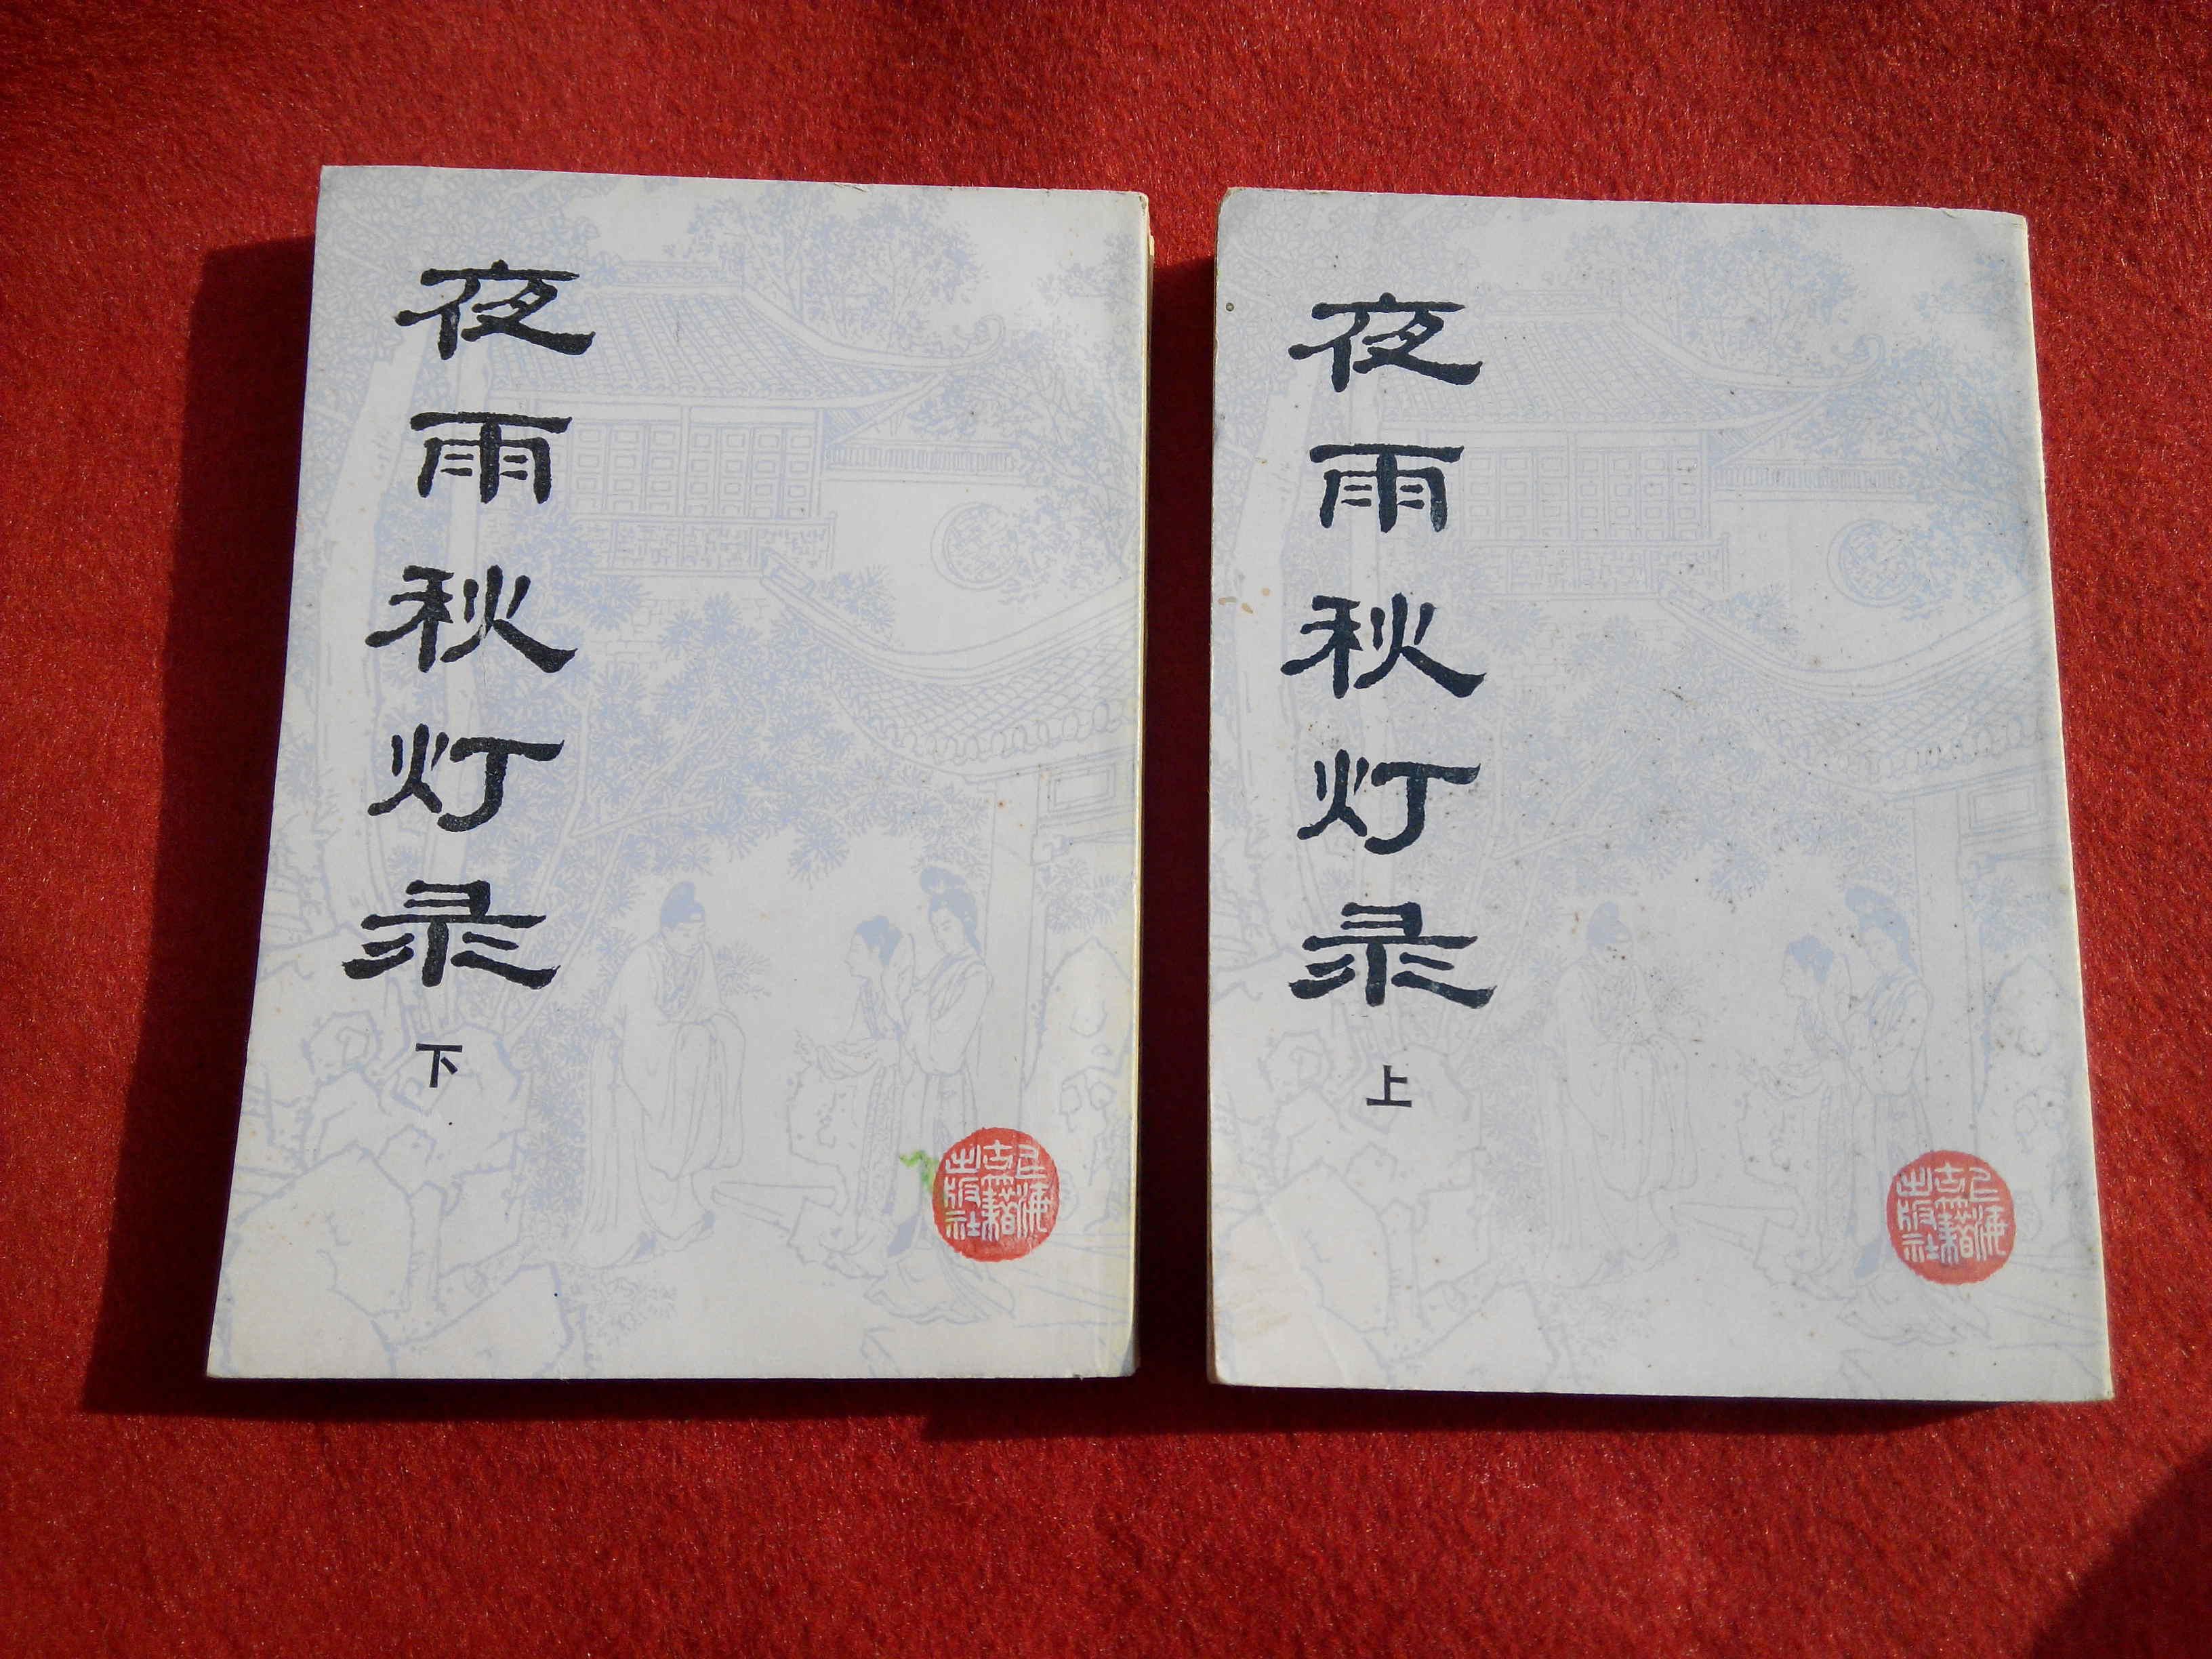 夜雨秋灯录
下
上海
古籍
出版社
夜雨秋灯录
上
上海
古籍
出版社